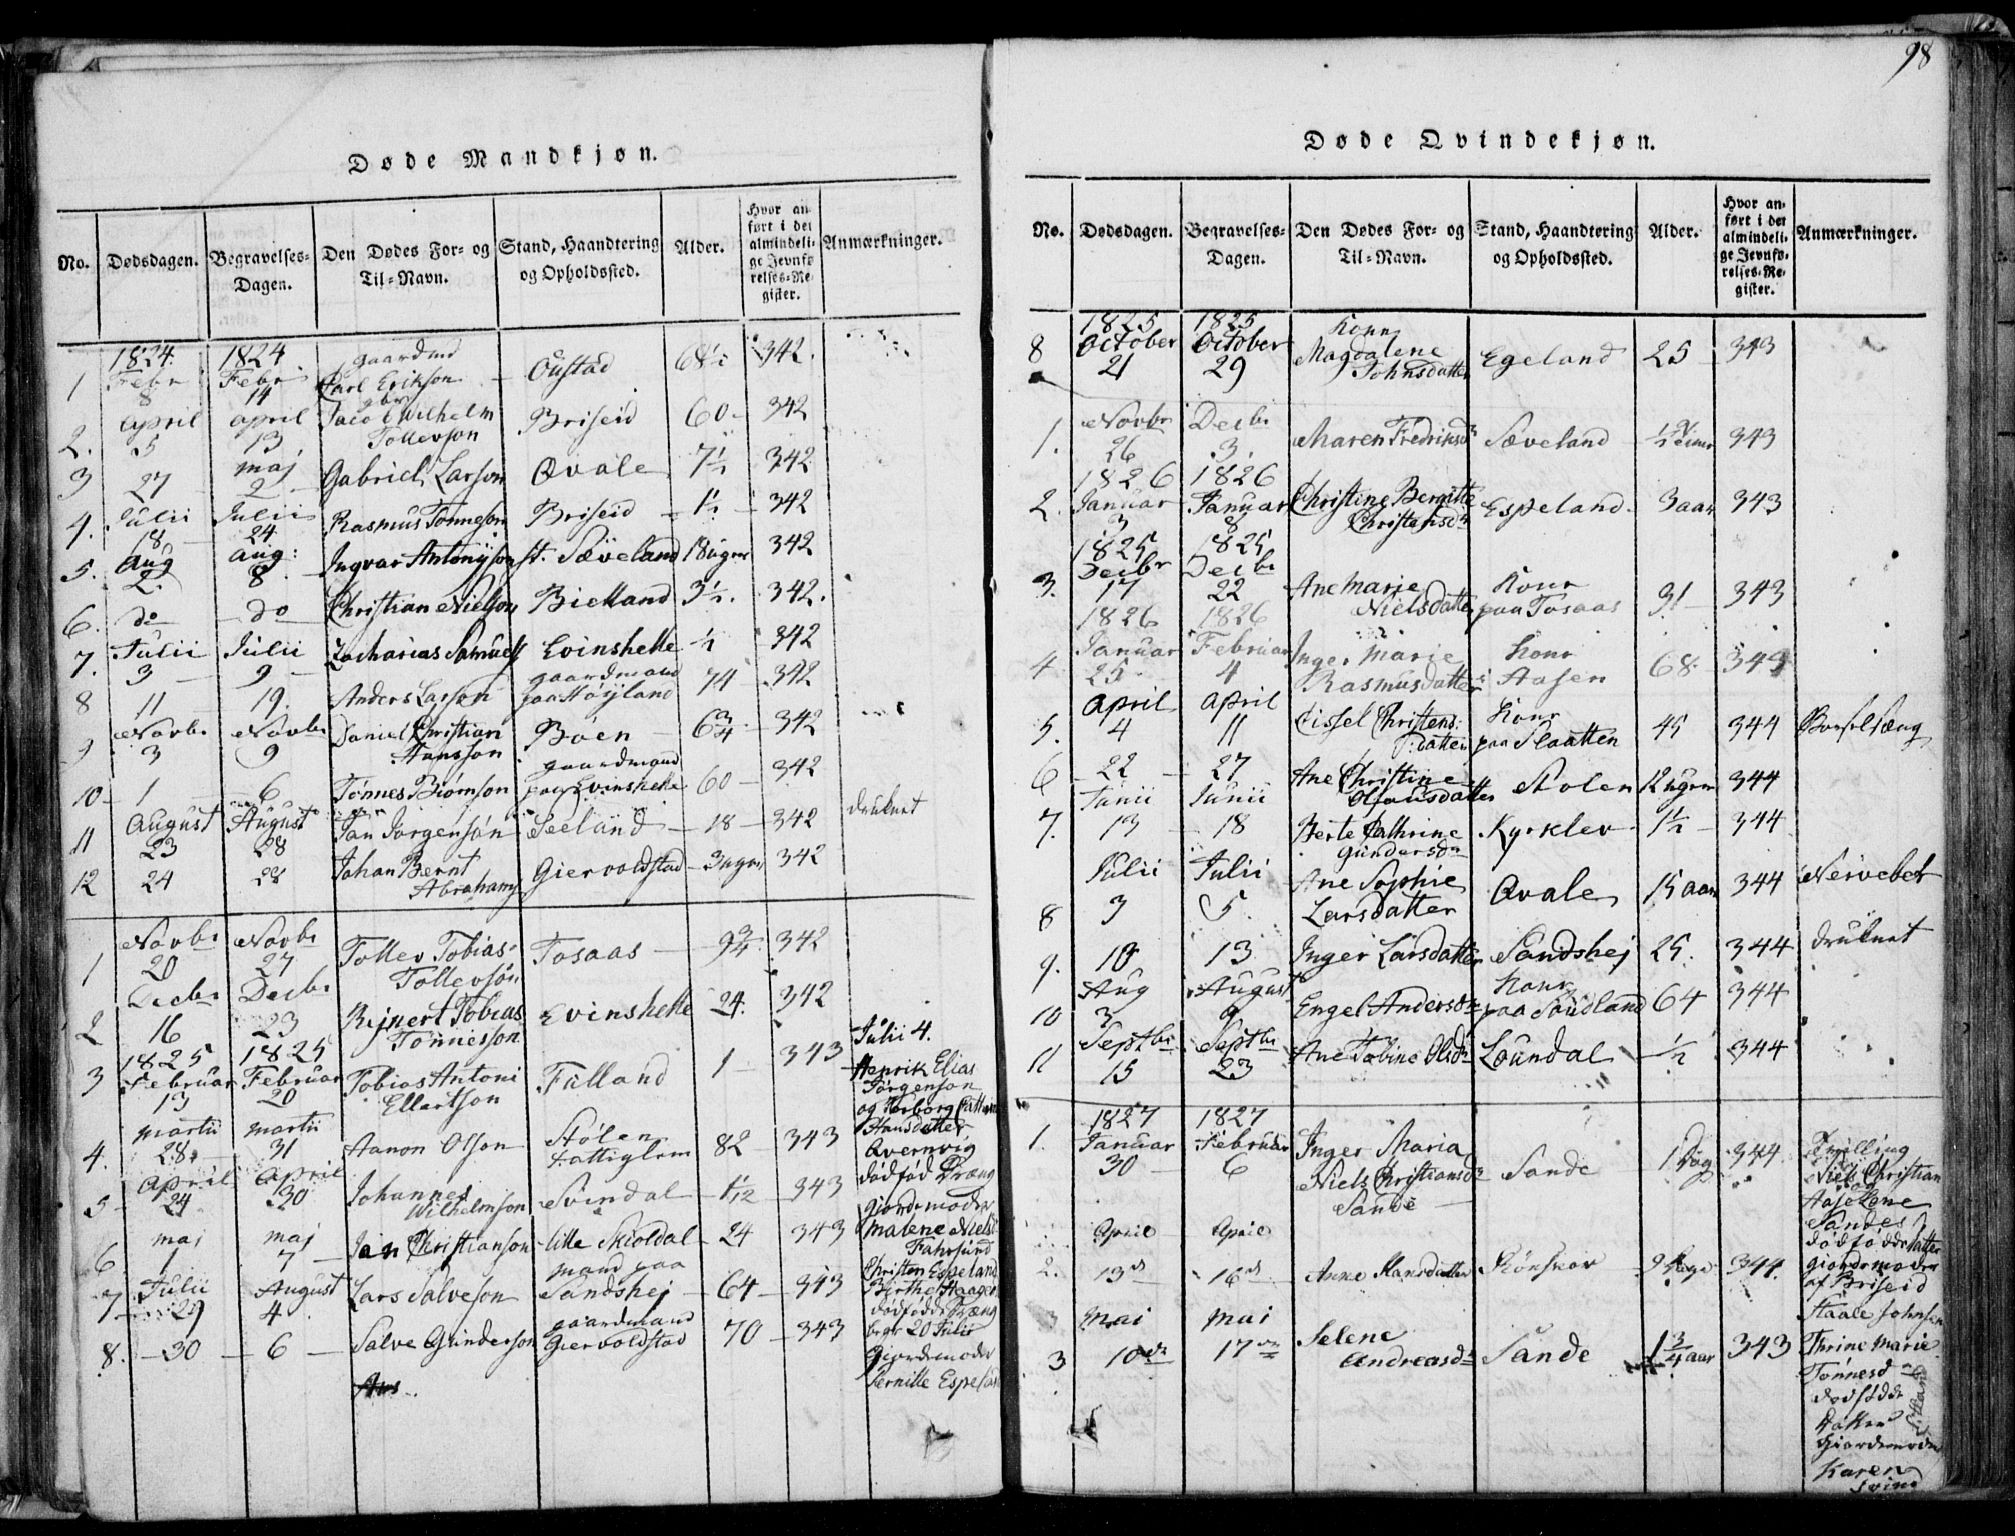 98
Døde Mandkjøn.
No. Dødsdagen. Begravelses-Dagen. Den Dødes For- og Til-Navn. Stand, Haandtering og Opholdssted. Alder. Hvor anført i det almindelige Jevnførelses-Register. Anmærkninger.
1 1824. Febr 8 1824. Febr 14 gaardmd Carl Erikson Oustad 68½ 342.
2. April 5 april 13 Jacob Wilhelm Tollevson Briseid 60 342
3 27 maj 2 Gabriel Larson Qvale 7½ 342
4. Julii 18 Julii 24 Rasmus Tønneson Briseid 1½ 342
5. Aug 2. Aug: 8 Ingvar Antonyson st. Sæveland 18 uger 342
6. do do Christian Nielson Bielland 3½. 342.
7. Julii 3 Julii 9 Zacharias Samuels Evinshelle ½ 342
8 11 19. Anders Larson gaardmand paa Høyland 74 342
9 Novbr 3 Novbr 9 Daniel Christian Hansson Böen 6¾ 342
10 1 6 Tønnes Biørnson gaardmand paa Evinshelle 60 342
11 August 23 August 28 Jan Jorgensøn Seeland 18 342 druknet
12 24 28 Johan Bernt Abrahams Giervoldstad 3 uger 342
1 Novbr 20 Novbr 27 Tollev Tobias Tollevsøn Tosaas 9¾ 342
2 Decbr 16 Decbr 23 Rejnert Tobias Tönnesson Evinshelle 24. 342
3 1825 Februar 13 1825 Februar 20 Tobias Antoni Ellertson Fülland 1 343
4. martii 28 martii 31 Aanon Olson Stölen Fattiglem 82 343
5 april 24 April 30 Johannes Wilhelmson Svindal 1/12 343
6 maj 1 maj 7 Jan Christianson lille Skioldal 24 343
7 Julii 29 August 4 Lars Salveson mand paa Sandshej 64 343
8. 30 6 Salve Gunderson gaardmand Giervoldstad 70 343
Julii 4.
Henrik Elias
Jörgenson
Hansdatter
Qvernvig
dødfød Dræng
giordemoder
Malene Niels
Fahrsund
Christen Espeland
Birthe
dødfødde Dræng
begr 20 Julii
Giordemoder
Pernille Espeland
Døde Qvindekjøn.
No. Dødsdagen. Begravelses-Dagen. Den Dødes For- og Til-Navn. Stand, Haandtering og Opholdssted. Alder. Hvor anført i det almindelige Jevnførelses-Register. Anmærkninger.
8 1825 October 21 1825 October 29 Kone Magdalene Johnsdatter Egeland 25 343
1. Novbr 26 Decbr 3. Maren Fredriksdr Sæveland ½ 343
2. 1826 Januar 3 1826 Januar 8 Christine Bergitte Christansdr Espeland 3 aar 343
3. 1825 Decbr 17 1825 Decbr 22 Ane Marie Nielsdatter Kone paa Tosaas 31 343
4 1826 Januar 25 1826 Februar 4 Inger Marie Rasmusdatter Kone i Aasen 68 343
5. April 4 April 11 Cissel Christensdatter Kone paa Slaatten 45 344 Barselsæng
6 22 27 Ane Christine Olhausdatter Stolen 12 uger 344
7. Junii 13 Junii 18 Berte Cathrine Gundersdr Kyrklev 1½ 344
8 Julii 3 Julii 5. Ane Sophie Larsdatter Qvale 15 aar 344 Nervefeb
9. 10 13 Inger Larsdatter Sandshej 25. 344 druknet
10 Aug 3 August 9 Engel Andersdr Kone paa Saudland 64 344
11 Septbr 15 Septbr 23 Ane Tobine Olsdr Loundal ½ 344
1. 1827 Januar 30 1827 Februar 6 Inger Maria Niels Christiansdr Sande Sande 1 Dag 344
2. April 13de April 16de Anne Hansdatter Rönskor 9 Dage 344
3 Mai 10de Mai 17de Selene Andreasdr Sande 1¾ aar 343
Tvilling
Niels Christian
og
Aase Lene
Sandes
dødfødde datter
giordemoder
af Briseid
Staale Johnsen
Thrine Marie
Tønnesd
dødfødde
Datter
Giordemoder
Karen